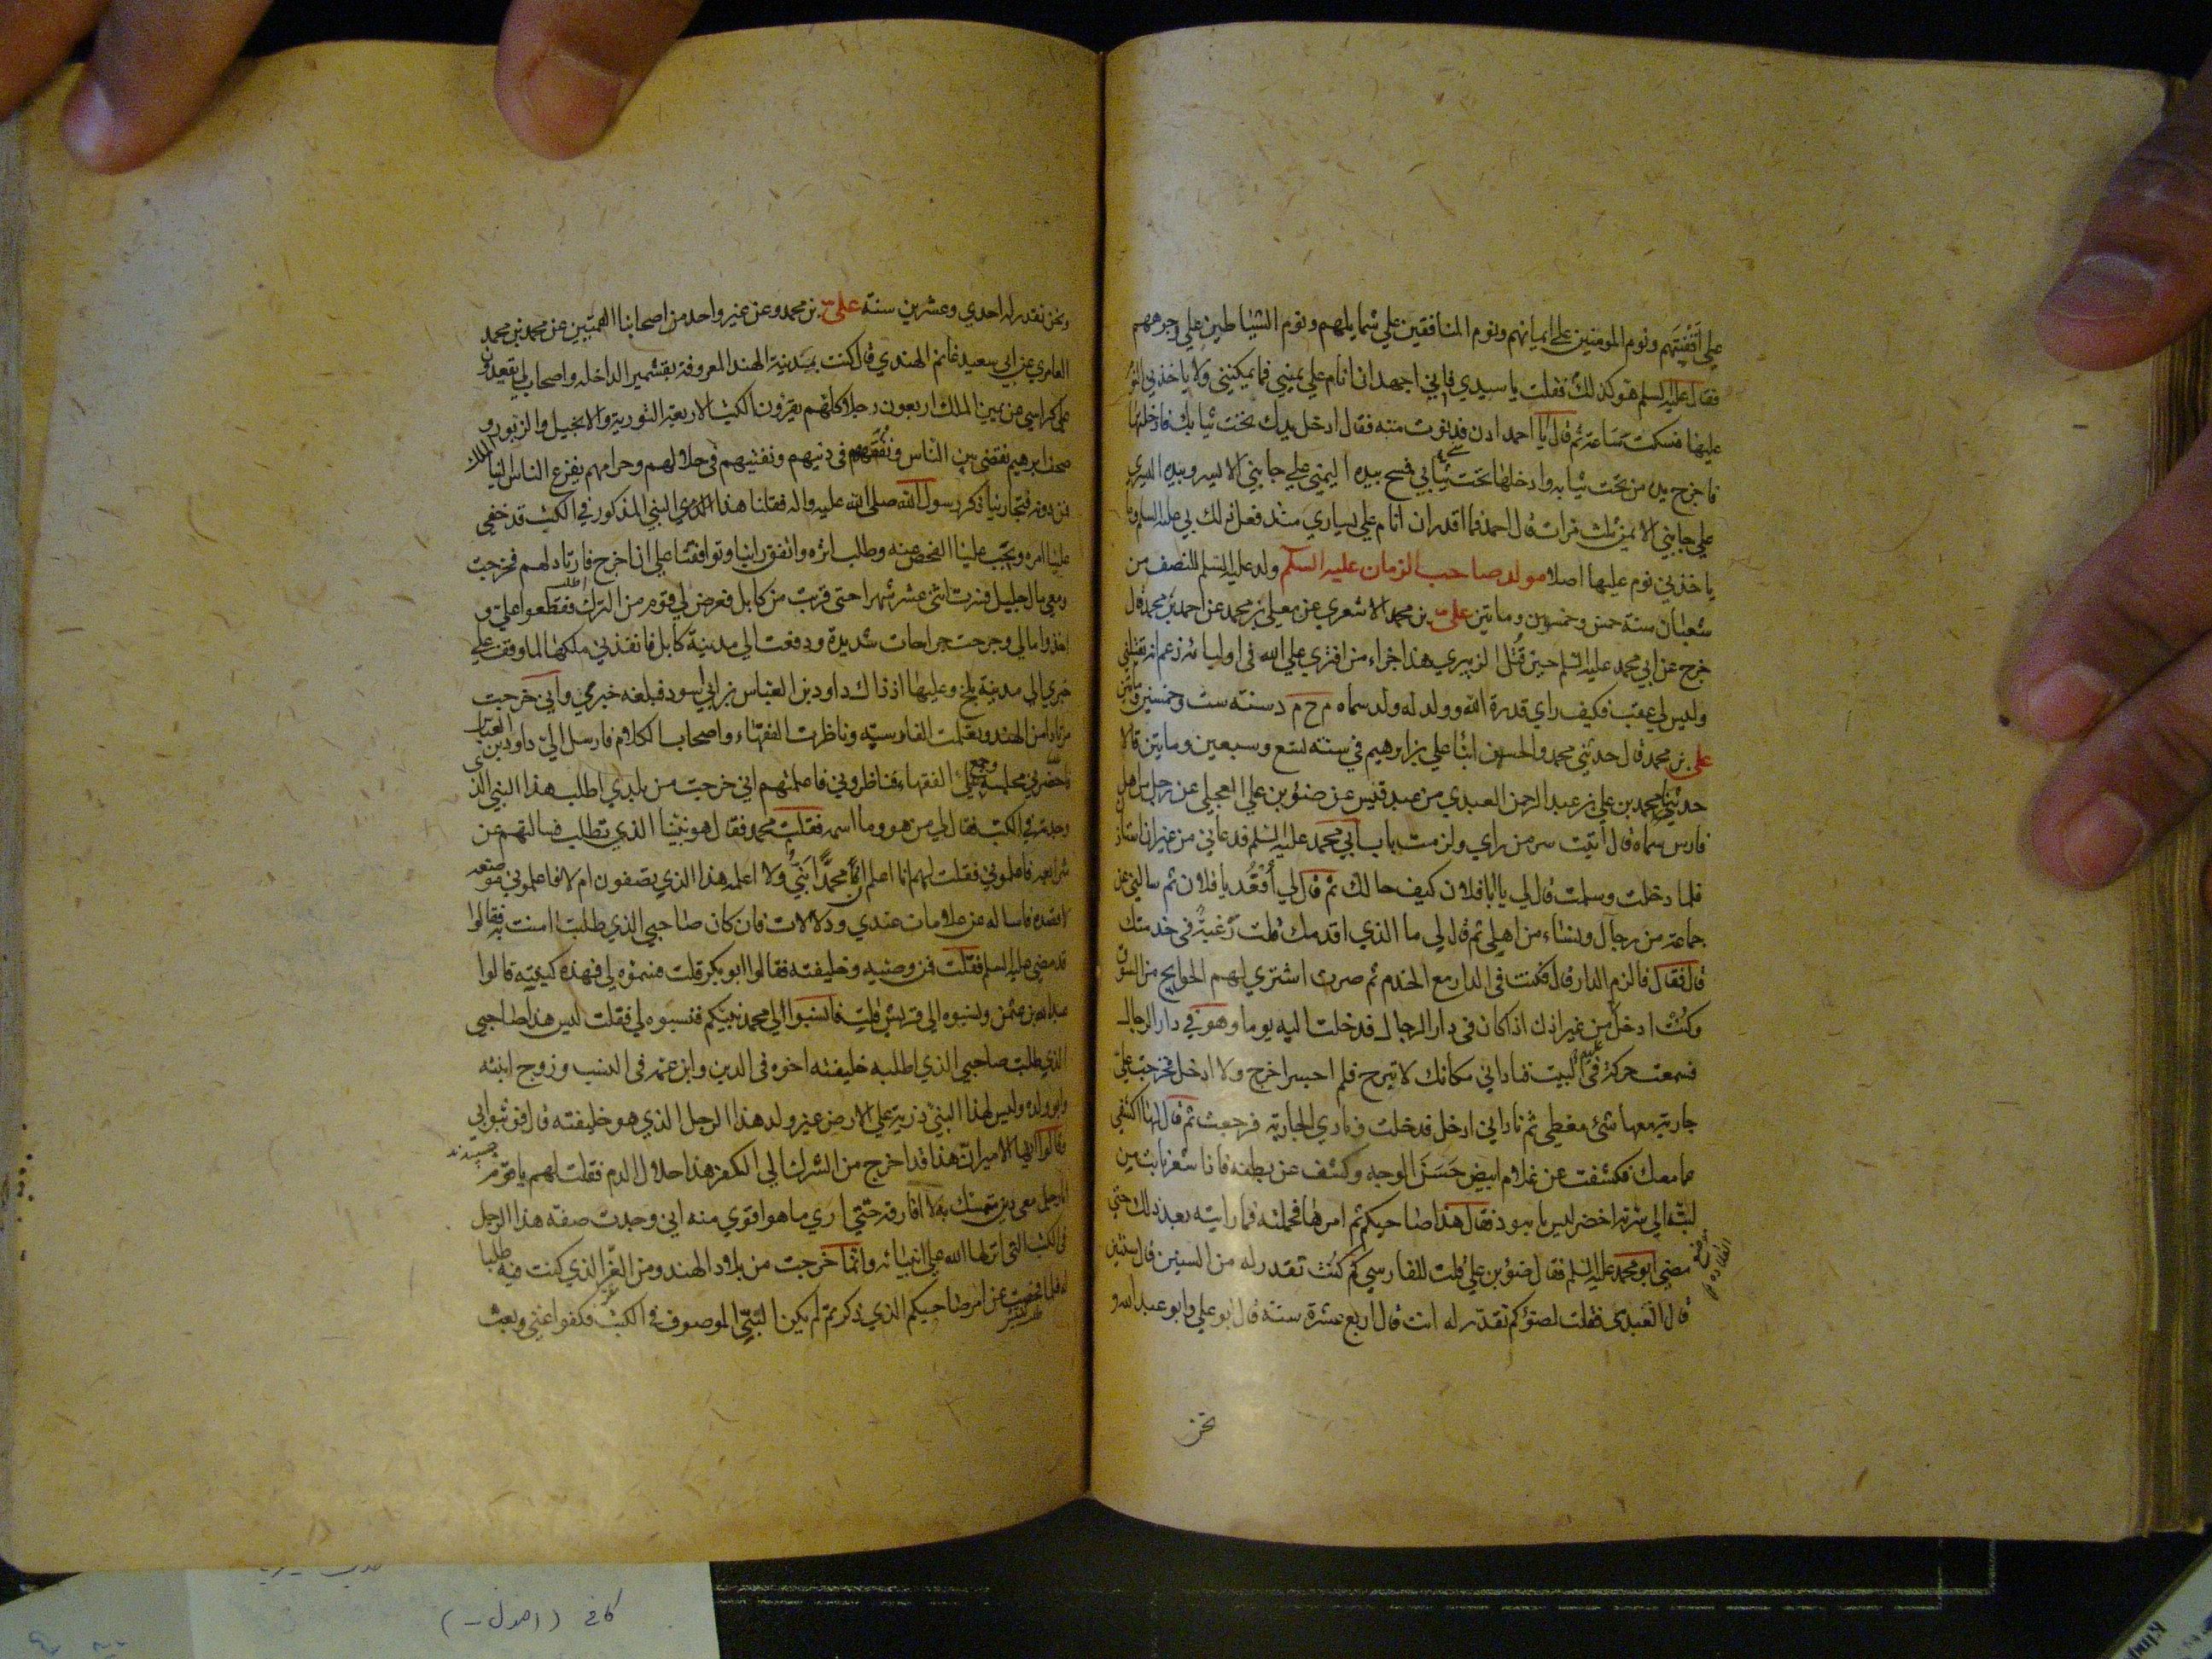 علي اقفيتهم ونوم المومنين علي ايمانهم ونوم المنافقين علي شمايلهم ونوم الشياطين علي وجوههم
فقال عليه السلم هو كذلك فقلت يا سيدي فاني اجهد ان انام علي يميني فما يمكنني ولا ياخذني النوم
عليها فسكت ساعة ثم قال يا احمد ادن فدنوت منه فقال ادخل يدك تحت ثيابك فادخلتها
فاخرج يده من تحت ثيابه وادخلها تحت ثيابي فمسح بيده اليمني علي جانبي الايسر وبيده اليسري
علي جانبي الايمن ثلث مرات قال احمد فما اقدر ان انام علي يساري منذ فعل ذلك بي عليه السلم وما
ياخذني نوم عليها اصلا مولد صاحب الزمان عليه السلم ولد عليه السلم للنصف من
شعبان سنة خمس وخمسين ومايتين علي بن محمد الاشعري عن معلي بن محمد عن احمد بن محمد قال
خرج عن ابي محمد عليه السلم حين قُتل الزبيري هذا جزاء من افتري علي الله في اوليائه زعم انه يقتلني
وليس لي عقب فكيف راي قدرة الله وولد له ولد سماه م ح م د سنة ست وخمسين ومايتين
علي بن محمد قال حدثني محمد والحسن ابنا علي بن ابرهيم في سنة تسع وسبعين ومايتين قالا
حدثنا محمد بن علي بن عبد الرحمن العبدي من عبد قيس عن ضوء بن علي العجلي عن رجل من اهل
فارس سماه قال اتيت سر من راي ولزمت باب ابي محمد عليه السلم فدعاني من غير ان استاذن
فلما دخلت وسلمت قال لي يا ابا فلان كيف حالك ثم قال لي أُقْعُد يا فلان ثم سالني عن
جماعة من رجال ونساء من اهلي ثم قال لي ما الذي اقدمك قلت رغبة في خدمتك
قال فقال فالزم الدار قال فكنت في الدار مع الخدم ثم صرت اشتري لهم الحوايج من السوق
وكنت ادخل من غير اذن اذا كان في دار الرجال فدخلت اليه يوما وهو في دار الرجال
فسمعت حركة في البيت فناداني مكانك لا تبرح فلم اجسر اخرج ولا ادخل فخرجت علي
جارية معها شئ مغطي ثم ناداني ادخل فدخلت ونادي الجارية فرجعت ثم قال لها اكشفي
عما معك فكشفت عن غلام ابيض حَسَنَ الوجه وكشف عن بطنه فاذا شعر نابت من
لبته الي سرته اخضر ليس باسود فقال هذا صاحبكم ثم امرها فحملته فما رايته بعد ذلك حتي
مضي ابو محمد عليه السلم فقال ضوء بن علي قلت للفارسي كم كنت تقدر له من السنين قال سنتين
قال العبدي فقلت لضوء كم تقدر له انت قال اربع عشرة سنة قال ابو علي وابو عبد الله و
نحن
ونحن نقدر له احدي وعشرين سنة علي بن محمد وعن غير واحد من اصحابنا القميين عن محمد بن محمد
العامري عن ابي سعيد غانم الهندي قال كنت بمدينة الهند المعروفة بقشمير الداخلة واصحاب لي يقعدون
علي كراسي عن يمين الملك اربعون رجلا كلهم يقرؤن الكتب الاربعة التورية والانجيل والزبور و
صحف ابرهيم نقضي بين الناس ونفقههم في دينهم ونفتيهم في حلالهم وحرامهم يفزع الناس الينا الملك
فمن دونه فتجارينا ذكر رسول الله صلي الله عليه واله فقلنا هذا النبي المذكور في الكتب قد خفي
علينا امره ويجب علينا الفحص عنه وطلب اثره واتفق راينا وتوافقنا علي ان اخرج فارتاد لهم فخرجت
ومعي مال جليل فسرت اثني عشر شهرا حتي قربت من كابل فعرض لي قوم من الترك فقطعوا علي و
اخذوا مالي وجرحت جراحات شديدة ودفعت الي مدينة كابل فانفذني ملكها لما وقف علي
خبري الي مدينة بلخ وعليها اذ ذاك داود بن العباس بن ابي اسود فبلغه خبري واني خرجت
مرتادا من الهند وتعلمت الفارسية وناظرت الفقهاء واصحاب الكلام فارسل الي داود بن العباس
فاحضرني مجلسه وجمع علي الفقهاء فناظروني فاعلمتهم اني خرجت من بلدي اطلب هذا النبي الذي
وجدته في الكتب فقال لي من هو وما اسمه فقلت محمد فقال هو نبينا الذي تطلب فسالتهم عن
شرايعه فاعلموني فقلت لهم انا اعلم ان محمدا نبي ولا اعلمه هذا الذي تصفون ام لا فاعلموني موضعه
لاقصده فاساله عن علامات عندي ودلالات فان كان صاحبي الذي طلبت امنت به فقالوا
قد مضي عليه السلم فقلت فمن وصيه وخليفته فقالوا ابو بكر قلت فسموه لي فهذه كنيته قالوا
عبد الله بن عثمن ونسبوه الي قريش قلت فانسبوا الي محمد نبيكم فنسبوه لي فقلت ليس هذا صاحبي
الذي طلبت صاحبي الذي اطلبه خليفته اخوه في الدين وابن عمه في النسب وزوج ابنته
وابو ولده وليس لهذا النبي ذرية علي الارض غير ولد هذا الرجل الذي هو خليفته قال فوثبوا بي
وقالوا ايها الامير ان هذا قد اخرج من الشرك الي الكفر هذا حلال الدم فقلت لهم يا قوم
انا رجل معي دين متمسك به لا افارقه حتي اري ما هو اقوي منه اني وجدت صفة هذا الرجل
في الكتب التي انزلها الله علي انبيائه وانما خرجت من بلاد الهند ومن العز الذي كنت فيه طلبا
له فلما فحصت عن امر صاحبكم الذي ذكرتم لم يكن النبي الموصوف في الكتب فكفوا عني وبعث
كافي (اصول -)